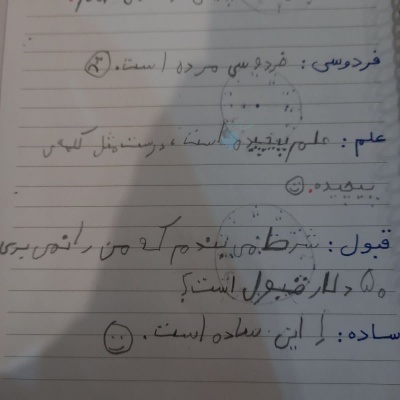 فردوسی: فردوسی مرده است.
علم: علم پیچیده است، درست مثل کلمهی
پیچیده.
قبول: شرط می بندم که من را نمی بری
۵۰ دلار قبول است؟
ساده: این ساده است.